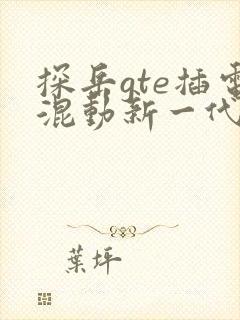 探岳gte插電
混動新一代
葉坪